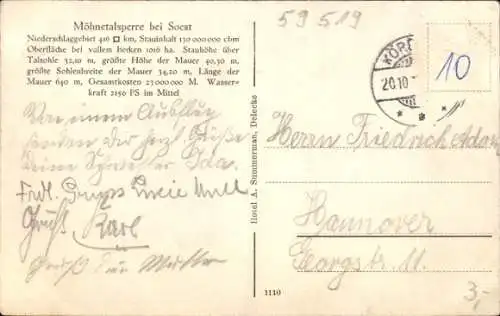 Möhnetalsperre bei Soest
Niederschlaggebiet 416 □ km, Stauinhalt 130 000 000 cbm
Oberfläche bei vollem Becken 1016 ha. Stauhöhe über
Talsohle 32,10 m, größte Höhe der Mauer 40,30 m
größte Sohlenbreite der Mauer 34,20 m, Länge der
Mauer 640 m, Gesamtkosten 23 000 000 M. Wasser-
kraft 2150 PS im Mittel
Von einem Ausflug
senden dir herzl. Grüße
Deine Schwester Ida.
Frdl.
Gruß Karl
Gruß
Hotel A. Summerman, Delecke
1110
59 519
KÖR
20.10
10
Herrn Friedrich
Hannover
Georgstr. 11.
3,-